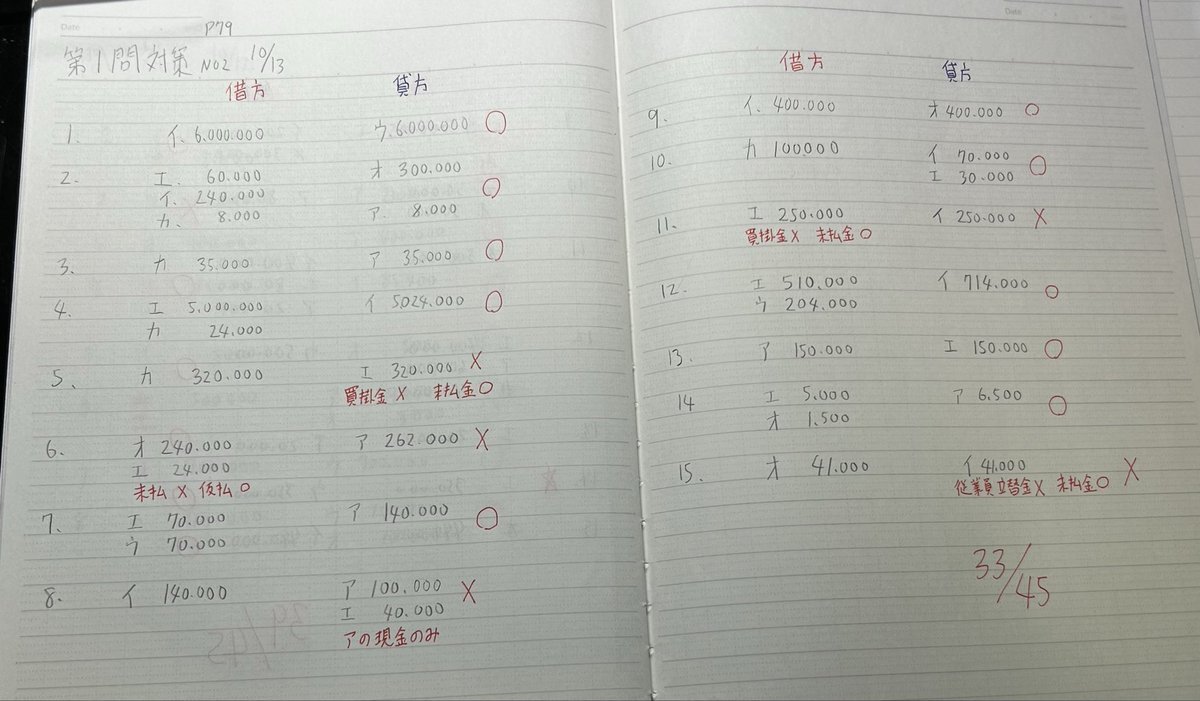 Date
P79
第1問対策 NO2 10/13
借方 貸方
1. イ. 6.000.000 ウ. 6.000.000 ○
2. エ. 60.000 オ 300.000
イ. 240.000 ○
カ. 8.000 ア 8.000
3. カ 35.000 ア 35.000 ○
4. エ 5.000.000 イ 5.024.000 ○
カ 24.000
5. カ 320.000 エ 320.000 ×
買掛金 × 未払金○
6. オ 240.000 ア 262.000 ×
エ 24.000
未払 × 仮払 ○
7. エ 70.000 ア 140.000 ○
ウ 70.000
8. イ 140.000 ア 100.000 ×
エ 40.000
アの現金のみ
Date
借方 貸方
9. イ. 400.000 オ 400.000 ○
10. カ 100000 イ 70.000 ○
エ 30.000
11. エ 250.000 イ 250.000 ×
買掛金× 未払金○
12. エ 510.000 イ 714.000 ○
ウ 204.000
13. ア 150.000 エ 150.000 ○
14 エ 5.000 ア 6.500 ○
オ 1.500
15. オ 41.000 イ 41.000 ×
従業員立替金× 未払金○
33/45